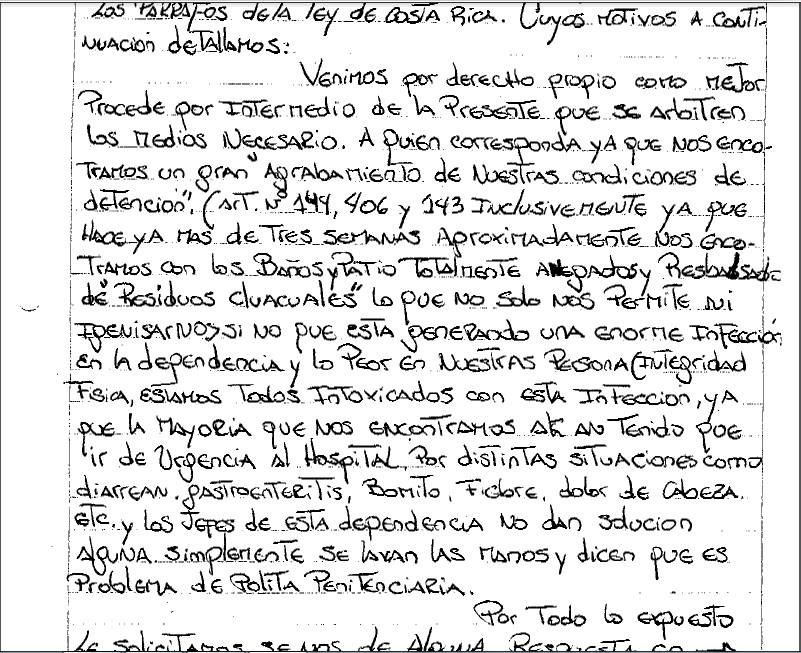 Los PARRAFOS de la ley de COSTA RICA. Cuyos MOTIVOS A CONTI-
NUACION deTALLAMOS:
Venimos por derecho propio como mejor
Procede por INTERMEDIO de la PRESENTE que se ArbiTren
los MEDIOS NECESARIO. A quien corresponda yA que NOS ENCO-
TRAMOS un gran "AgrabAMiento de NUESTRAS condiciones de
detención". (ArT. Nº 144, 406 y 143 INclusiveMENTE yA que
HACE yA MAS de TRES SEMANAS AproxiMadaMENTE NOS ENCO-
TRAMOS con los BAÑOS y PATIO TOTALMENTE ANEGADOS y
de "Residuos Cluacuales" lo que NO solo NOS PERMITE NI
IGENISARNOS, SI NO que ESTA generando una ENORME INFECCIÓN
en la dependencia y lo Peor en NUESTRAS PERSONA (INTEgRidad
Fisica, ESTAMOS TODOS INTOXICADOS con ESTA INFECCION, yA
que la MAYORIA que NOS ENCONTRAMOS AN TENIDO que
ir de Urgencia Al Hospital Por distintas SITUACIONES como
diarrean, gastroenteritis, Bomito, Fiebre, dolor de CABEZA.
ETC. y los Jefes de ESTA dependencia NO dan solucion
Alguna simplemente se lavan las manos y dicen que es
Problema de Polita PENITENCIARIA.
Por Todo lo expuesto
Le solicitamos se nos de Alguna Respuesta